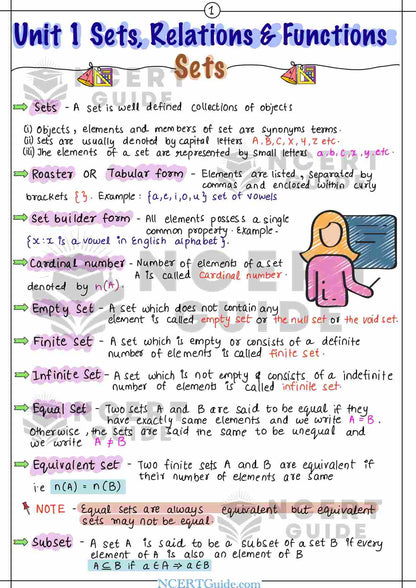 1
Unit 1 Sets, Relations & Functions
Sets
NCERT
GUIDE
Sets - A set is well defined collections of objects
(i) Objects, elements and members of set are synonyms terms.
(ii) Sets are usually denoted by capital letters A, B, C, X, Y, Z etc.
(iii) The elements of a set are represented by small letters a, b, c, x, y, etc.
Roaster OR Tabular form - Elements are listed, separated by
commas and enclosed within curly
brackets { }. Example : {a, e, i, o, u} set of vowels
Set builder form - All elements possess a single
common property. Example -
{x : x is a vowel in English alphabet}.
Cardinal number - Number of elements of a set
A is called cardinal number.
denoted by n(A).
Empty Set - A set which does not contain any
element is called empty set or the null set or the void set.
Finite set - A set which is empty or consists of a definite
number of elements is called finite set.
Infinite Set - A set which is not empty & consists of a indefinite
number of elements is called infinite set.
Equal Set - Two sets A and B are said to be equal if they
have exactly same elements and we write A = B.
Otherwise, the sets are said the same to be unequal and
we write A ≠ B
Equivalent set - Two finite sets A and B are equivalent if
their number of elements are same
i.e n(A) = n(B)
NOTE - Equal sets are always equivalent but equivalent
sets may not be equal
NCERT
GUIDE
Subset - A set A is said to be a subset of a set B if every
element of A is also an element of B
A ⊆ B if a ∈ A ⇒ a ∈ B
NCERTGuide.com